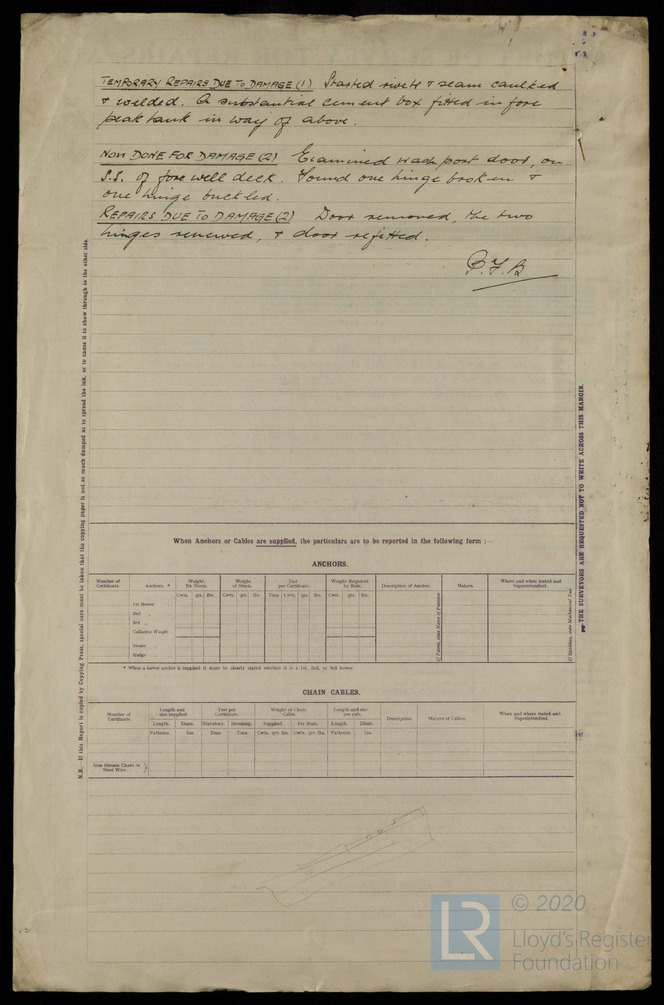 TEMPORARY REPAIRS DUE TO DAMAGE (1) Started rivets & seam caulked
& welded. A substantial cement box fitted in fore
peak tank in way of above.
NOW DONE FOR DAMAGE (2) Examined wash port door, on
S.S. of fore well deck. Found one hinge broken &
one hinge buckled.
REPAIRS DUE TO DAMAGE (2) Door removed, the two
hinges renewed, & door refitted.
N.B.—If this Report is copied by Copying Press, special care must be taken that the copying paper is not so much damped as to spread the ink, or to cause it to show through to the other side.
THE SURVEYORS ARE REQUESTED NOT TO WRITE ACROSS THIS MARGIN.
When Anchors or Cables are supplied, the particulars are to be reported in the following form :—
ANCHORS.
Number of Certificate.
Anchors. *
Weight, Ex Stock.
Weight of Stock.
Test per Certificate.
Weight Required by Rule.
Description of Anchor.
Makers.
Where and when tested and Superintendent.
Cwts. qrs. lbs. Cwts. qrs. lbs. Tons Cwts. qrs. lbs. Cwts. qrs. lbs.
1st Bower
2nd „
3rd „
Collective Weight
Stream
Kedge
If Patent, state Name of Patentee
* When a bower anchor is supplied it must be clearly stated whether it is a 1st, 2nd, or 3rd bower.
CHAIN CABLES.
Number of Certificate.
Length and size supplied.
Test per Certificate.
Weight of Chain Cable.
Length and size per rule.
Description.
Makers of Cables.
Where and when tested and Superintendent.
Length. Diam. Statutory. Breaking. Supplied. Per Rule. Length. Diam.
Fathoms. Ins. Tons. Tons. Cwts. qrs. lbs. Cwts. qrs. lbs. Fathoms. Ins.
Iron Stream Chain or
Steel Wire
LR
© 2020
Lloyd's Register
Foundation